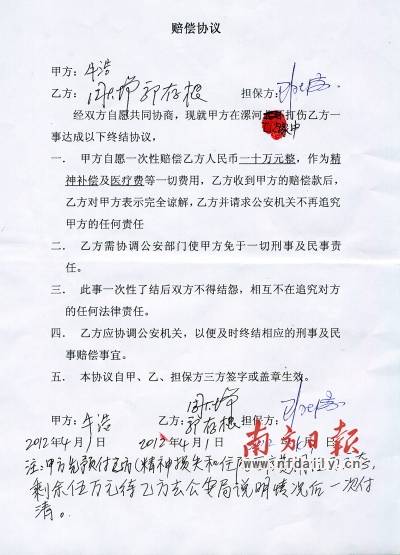 赔偿协议
甲方：牛浩
乙方： 郭存根 担保方：
经双方自愿共同协商，现就甲方在漯河 打伤乙方一
家中
事达成以下终结协议，
一． 甲方自愿一次性赔偿乙方人民币一十万元整，作为精
神补偿及医疗费等一切费用，乙方收到甲方的赔偿款后，
乙方对甲方表示完全谅解，乙方并请求公安机关不再追究
甲方的任何责任
二． 乙方需协调公安部门使甲方免于一切刑事及民事责
任。
三． 此事一次性了结后双方不得结怨，相互不在追究对方
的任何法律责任。
四． 乙方应协调公安机关，以便及时终结相应的刑事及民
事赔偿事宜。
五． 本协议自甲、乙、担保方三方签字或盖章生效。
甲方：牛浩 乙方：郭存根 担保方：
2012年4月1日 2012年4月1日
南方日报
www.nfdaily.cn
注：甲方先预付乙方（精神损失和住
剩余伍万元待乙方去公安局说明情况后一次付
清。